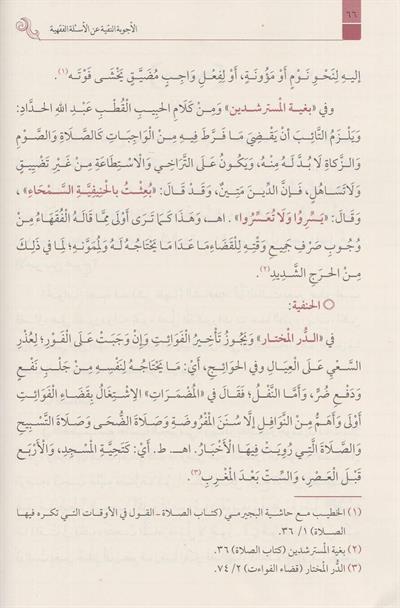 ٦٦
الأجوبة النقية عن الأسئلة الفقهية
إِليهِ لِنَحْوِ نَوْمٍ أَوْ مَؤُونَةٍ، أَوْ لِفِعْلِ وَاجِبٍ مُضَيَّقٍ يَخْشَى فَوْتَه(١).
وفي «بغية المسترشدين» وَمِنْ كَلَامِ الحبِيبِ القُطْبِ عَبْدِ اللهِ الحَدَّادِ:
وَيَلْزَمُ التَّائِبَ أَنْ يَقْضِيَ مَا فَرَّطَ فِيهِ مِنَ الْوَاجِبَاتِ كَالصَّلَاةِ وَالصَّوْمِ
وَالزَّكاةِ لَا بُدَّ لَهُ مِنْهُ، وَيَكُونُ عَلَى التَّرَاخِي وَالْاسْتِطَاعَةِ مِنْ غَيْرِ تَضْيِيقٍ
وَلَا تَسَاهُلٍ، فَإِنَّ الدِّينَ مَتِينٌ، وَقَدْ قَالَ: «بُعِثْتُ بِالحْنِيفِيَّةِ السَّمْحَاءِ»،
وَقَالَ: «يَسِّرُوا وَلَا تُعَسِّرُوا» . اهـ، وَهَذَا كَمَا تَرَى أَوْلَى مِمَّا قَالَهُ الْفُقَهَاءُ مِنْ
وُجُوبِ صَرْفِ جَمِيعِ وَقْتِهِ لِلْقَضَاءِ مَا عَدَا مَا يَحْتَاجُهُ لَهُ وَلِمُمَوَّنِهِ؛ لِمَا فِي ذَلِكَ
مِنَ الْحَرَجِ الشَّدِيدِ(٢).
الحنفية:
في «الدُّر المختار» وَيَجُوزُ تَأْخِيرُ الْفَوَائِتِ وَإِنْ وَجَبَتْ عَلَى الْفَوْرِ؛ لِعُذْرِ
السَّعْيِ عَلَى الْعِيَالِ وفي الحوَائِجِ، أَيْ: مَا يَحْتَاجُهُ لِنَفْسِهِ مِنْ جَلْبِ نَفْعٍ
وَدَفْعِ ضُرٍّ، وَأَمَّا النَّفْلُ؛ فَقَالَ فِي «الْمُضْمَرَاتِ» الِاشْتِغَالُ بِقَضَاءِ الْفَوَائِتِ
أَوْلَى وَأَهَمُّ مِنَ النَّوَافِلِ إِلَّا سُنَنَ الْمَفْرُوضَةِ وَصَلَاةَ الضُّحَى وَصَلَاةَ التَّسْبِيحِ
وَالصَّلَاةَ الَّتِي رُوِيَتْ فِيهَا الْأَخْبَارُ. اهـ. ط. أَيْ: كَتَحِيَّةِ الْمَسْجِدِ، وَالْأَرْبَعِ
قَبْلَ الْعَصْرِ، وَالسِّتِّ بَعْدَ الْمَغْرِبِ(٣).
(١) الخطيب مع حاشية البجيرمي (كتاب الصلاة - القول في الأوقات التي تكره فيها
الصلاة) ١ / ٣٦.
(٢) بغية المسترشدين (كتاب الصلاة) ٣٦.
(٣) الدُّر المختار (قضاء الفوائت) ٢ / ٧٤.